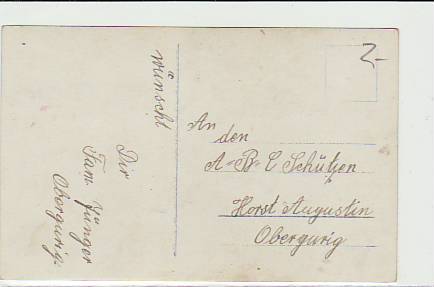 wünscht
Dir
Fam. Jünger
Obergurig.
2-
An
den
A-B-C Schützen
Horst Augustin
Obergurig